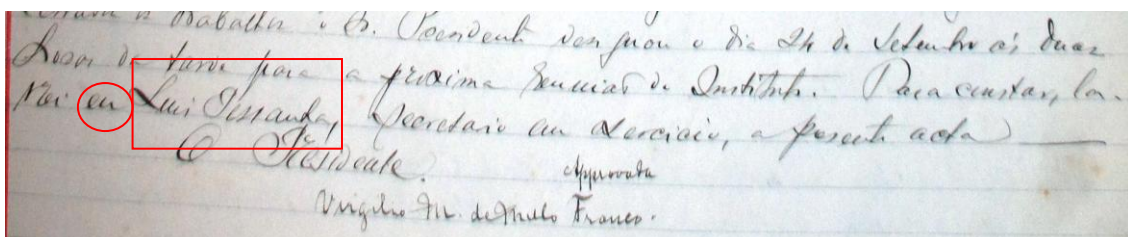 os trabalhos o Sr. Presidente designou o dia 24 de Setembro ás duas
horas da tarde para a proxima reunião do Instituto. Para constar, la-
vrei eu Luis Pessanha, Secretario em exercicio, a presente acta
O Presidente.
Approvada
Virgilio M. de Mello Franco.